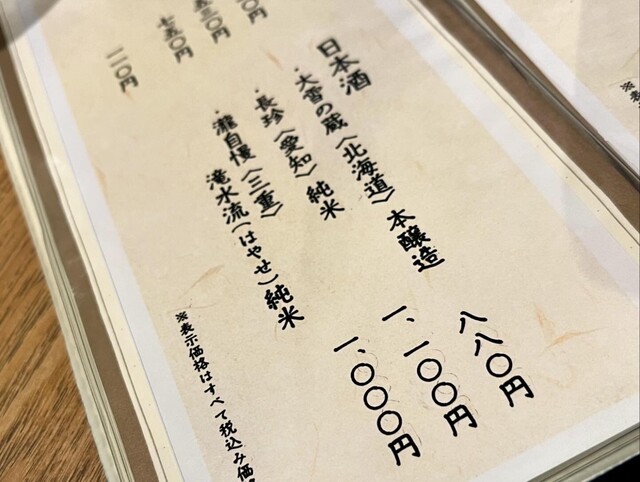 日本酒
・大雪の蔵(北海道)本醸造 八八〇円
・長珍(愛知)純米 一、一〇〇円
・瀧自慢(三重) 一、〇〇〇円
滝水流(はやせ)純米
※表示価格はすべて税込み価
五三〇円
七五〇円
一一〇円
※表